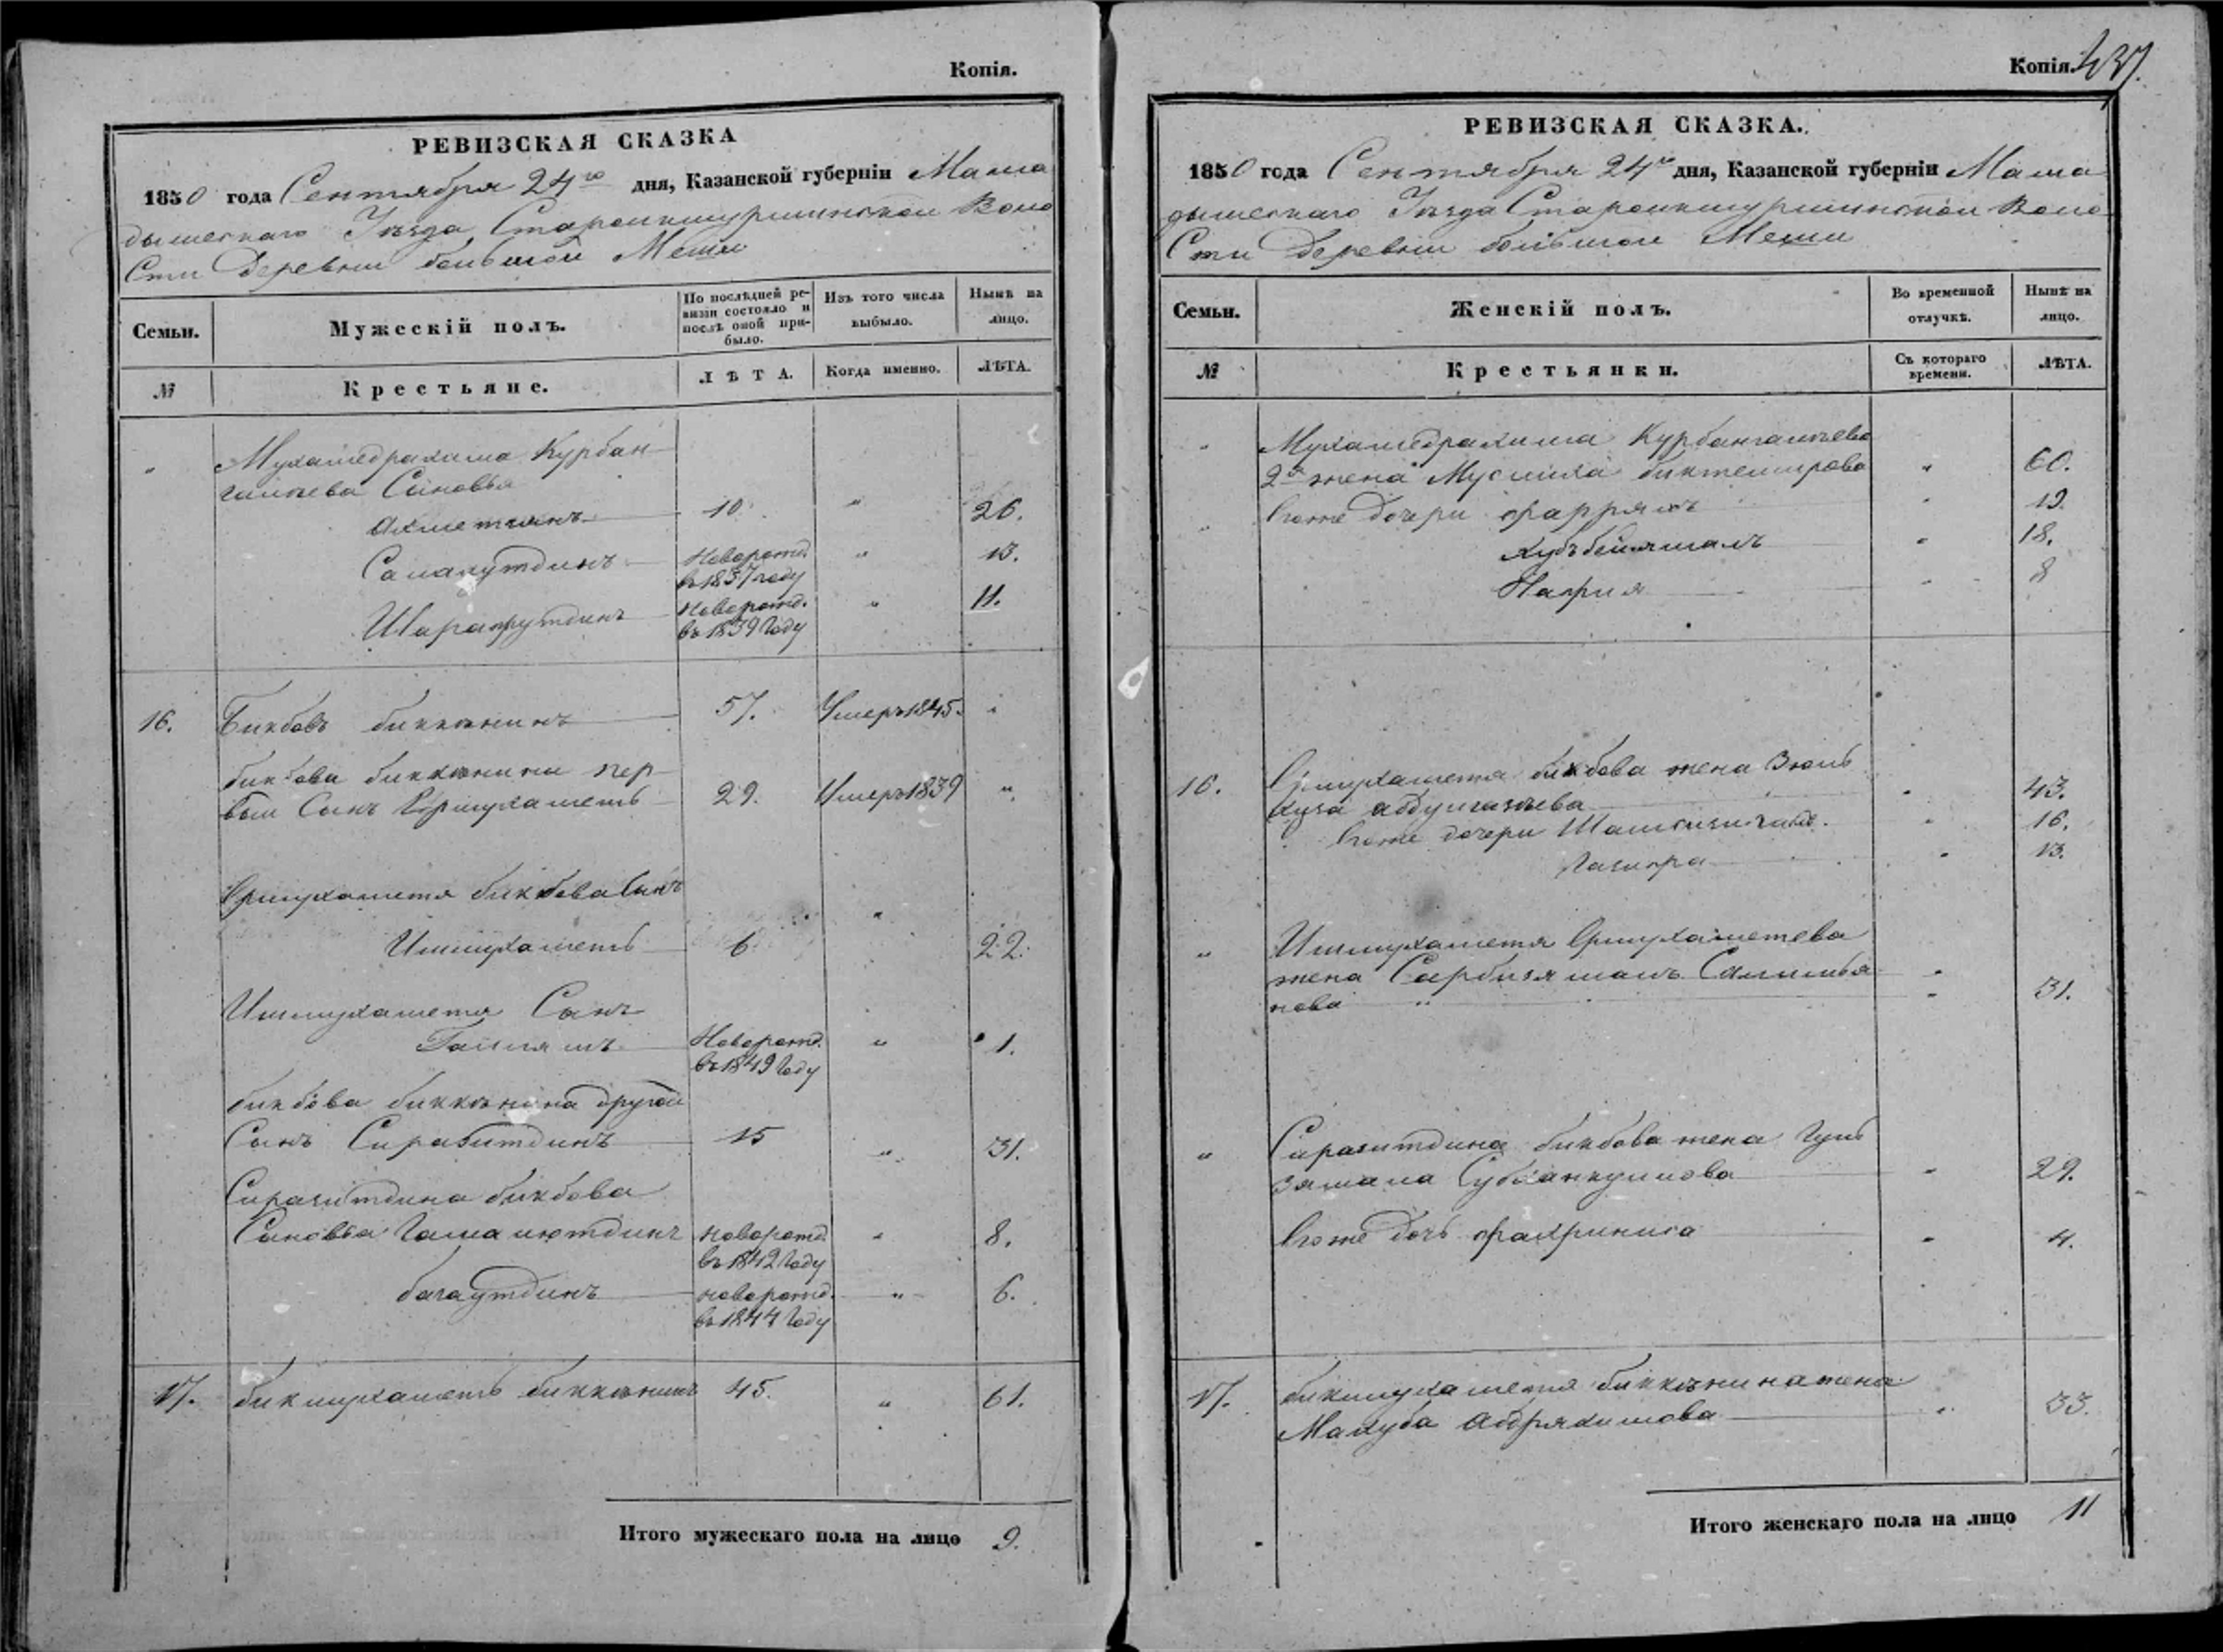 Копія.
РЕВИЗСКАЯ СКАЗКА
1850 года Сентября 24го дня, Казанской губерніи Мама
дышскаго Уѣзда Староикшурминской Воло
Сти Деревни большой Меши
Семьи.
Мужескій полъ.
По послѣдней ре-
визіи состояло и
послѣ оной при-
было.
Изъ того числа
выбыло.
Нынѣ на
лицо.
№
Крестьяне.
ЛѢТА.
Когда именно.
ЛѢТА.
„ Мухамедрахима Курбан
галиева Сыновья
Ахметзянъ 10 „ 26.
Салахутдинъ Новорожд. „ 13.
въ 1837 году
Шарафутдинъ Новорожд. „ 11.
въ 1839 Году
16. Бикбовъ биккѣнинъ 57. Умеръ 1845. „
бикбова биккѣнина пер
вый Сынъ Ермухаметь 29. Умеръ 1839 „
Ермухаметя бикбова Сынъ „
Ишмухаметь 6 22.
Ишмухаметя Сынъ
Новорожд. „ 1.
въ 1849 Году
бикбова биккѣнина другой
Сынъ Сиразитдинъ 15 „ 31.
Сиразитдина бикбова
Сыновья Гамалютдинъ новорожд. „ 8.
въ 1842 Году
багаутдинъ новорожд. „ 6.
въ 1844 Году
17. бикмухаметь биккѣнинъ 45. „ 61.
Итого мужескаго пола на лицо 9.
Копія. 437.
РЕВИЗСКАЯ СКАЗКА.
1850 года Сентября 24го дня, Казанской губерніи Мама
дышскаго Уѣзда Староикшурминской Воло
Сти Деревни большой Меши
Семьи.
Женскій полъ.
Во временной
отлучкѣ.
Нынѣ на
лицо.
№
Крестьянки.
Съ котораго
времени.
ЛѢТА.
„ Мухамедрахима Курбангалиева
2я жена Муслиха биктемирова „ 60.
Егоже дочери 19.
„ 18.
Нафия „ 8
16. Ермухаметя бикбова жена Зюль
хуза абдулгазѣева „ 43.
Егоже дочери „ 16.
„ 13.
„ Ишмухаметя Ермухаметева
жена Сарбизямалъ Салимья „
нова „ 31.
„ Сиразитдина бикбова жена Гуль
зямала Субханкулова „ 29.
Егоже дочь фахриниса „ 4.
17. бикмухаметя биккѣнина жена
Махуба Абдряхимова „ 33.
Итого женскаго пола на лицо 11